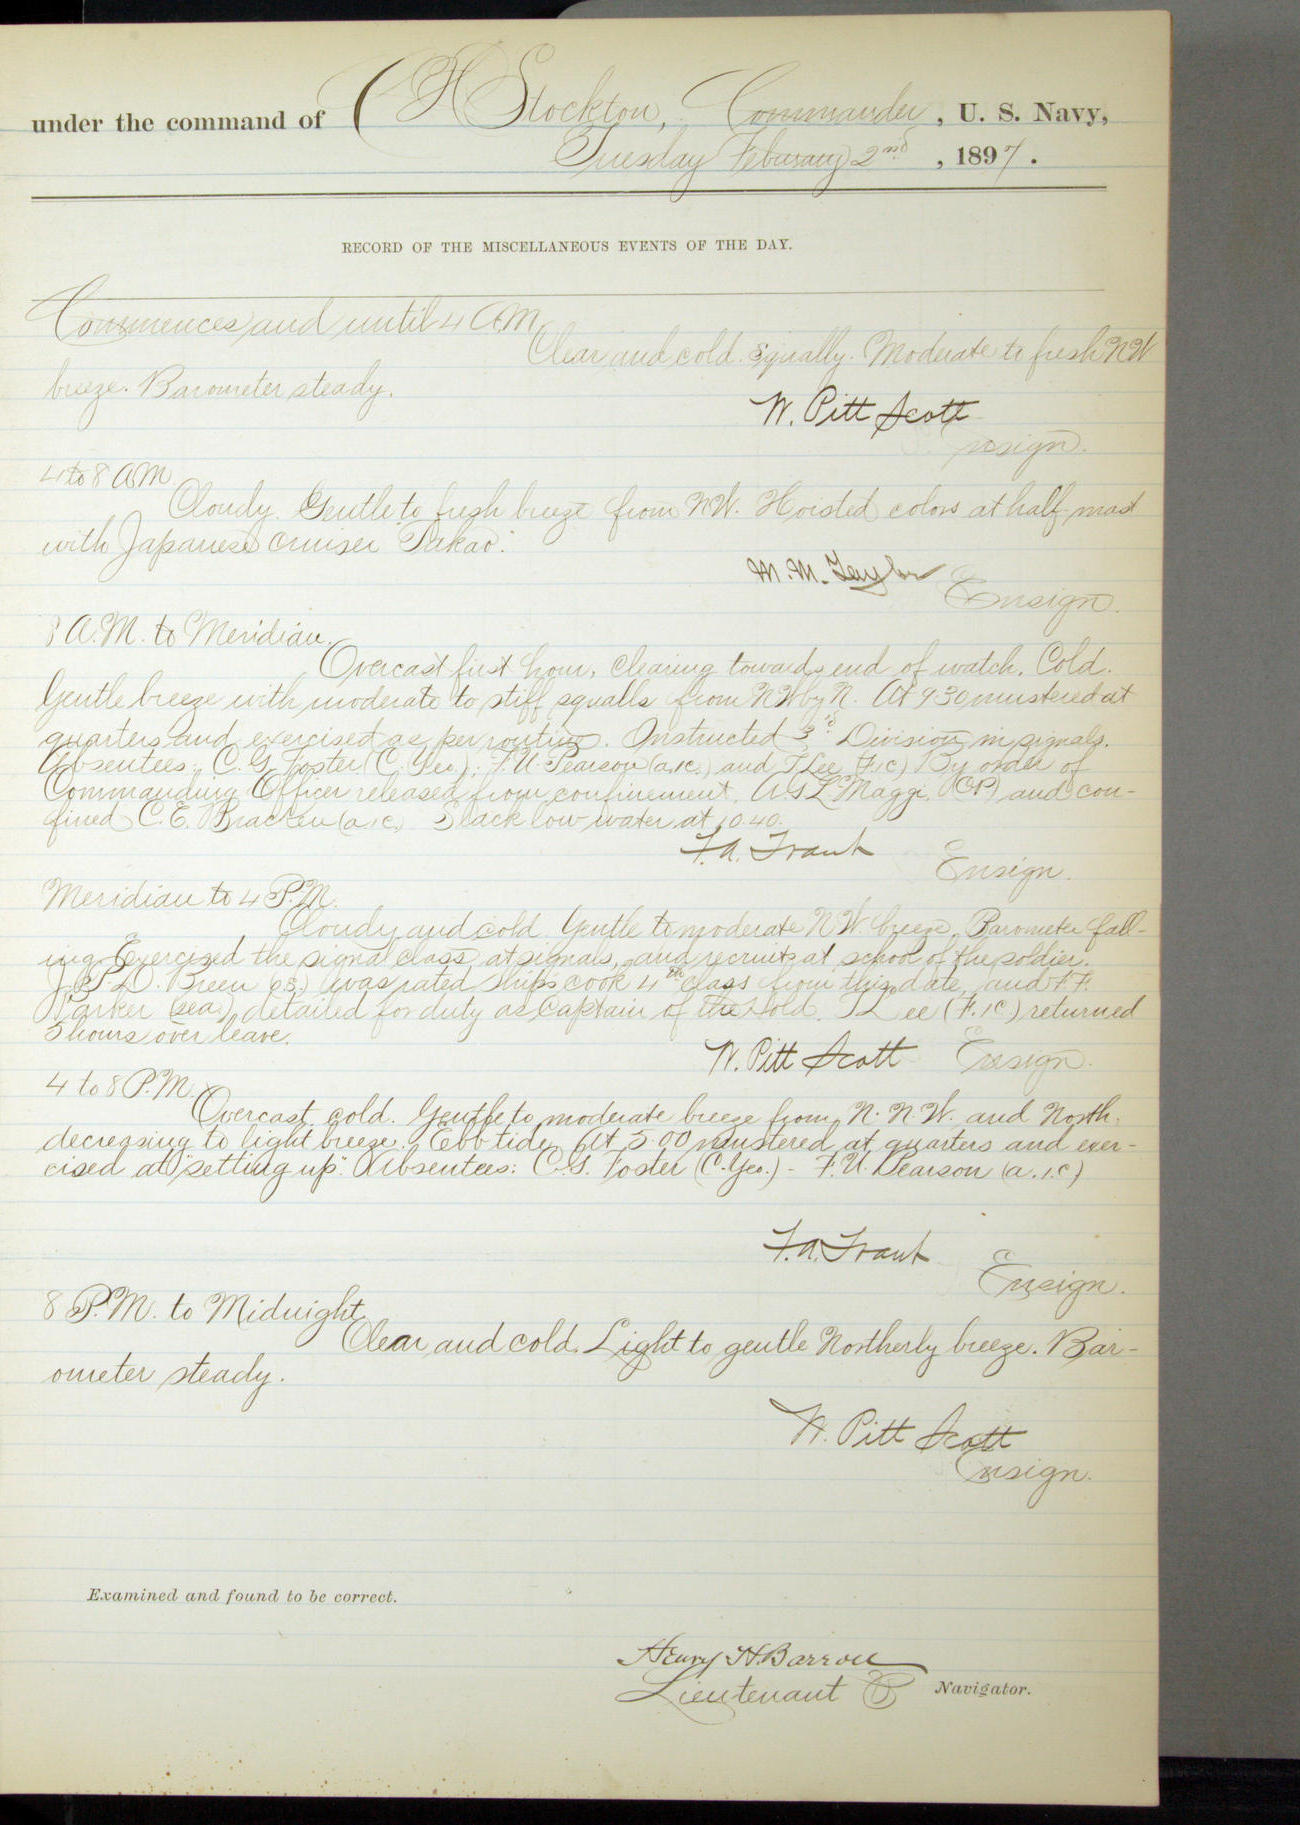 under the command of C H Stockton, Commander, U. S. Navy,
Tuesday Feburary 2nd, 1897.
RECORD OF THE MISCELLANEOUS EVENTS OF THE DAY.
Commences and until 4 AM
Clear and cold. Squally. Moderate to fresh NW
breeze. Barometer steady.
W. Pitt Scott
Ensign.
4 to 8 AM.
Cloudy. Gentle to fresh breeze from NW. Hoisted colors at half-mast
with Japanese cruiser "Takao."
M. M. Taylor
Ensign.
8 A.M. to Meridian.
Overcast first hour, clearing towards end of watch. Cold.
Gentle breeze with moderate to stiff squalls from NW by N. At 9.30 mustered at
quarters and exercised as per routine. Instructed 3d Division in signals.
Absentees: C. G. Foster (C. Yeo.); F. U. Pearson (a.1c.) and T Lee (F.1c) By order of
Commanding Officer released from confinement, A. G L Maggi, (CP) and con-
fined C. E. Bracken (a.1c.) Slack low water at 10.40.
F. A. Traut
Ensign.
Meridian to 4 P.M.
Cloudy and cold. Gentle to moderate N.W. breeze. Barometer fall-
ing. Exercised the signal class at signals, and recruits at school of the soldier.
J. P. D. Breen (o.s.) was rated Ship's cook 4th class from this date, and F. F.
Parker (sea) detailed for duty as Captain of the Hold. T Lee (F.1c) returned
5 hours over leave.
W. Pitt Scott Ensign.
4 to 8 P.M.
Overcast, cold. Gentle to moderate breeze from N.N.W. and North,
decreasing to light breeze. Ebb tide. At 5.00 mustered at quarters and exer-
cised at "setting up". Absentees: C. G. Foster (C. Yeo.) - F. U. Pearson (a.1.c)
F. A. Traut
Ensign.
8 P.M. to Midnight
Clear and cold. Light to gentle Northerly breeze. Bar-
ometer steady.
W. Pitt Scott
Ensign.
Examined and found to be correct.
Henry H. Barroll
Lieutenant Navigator.